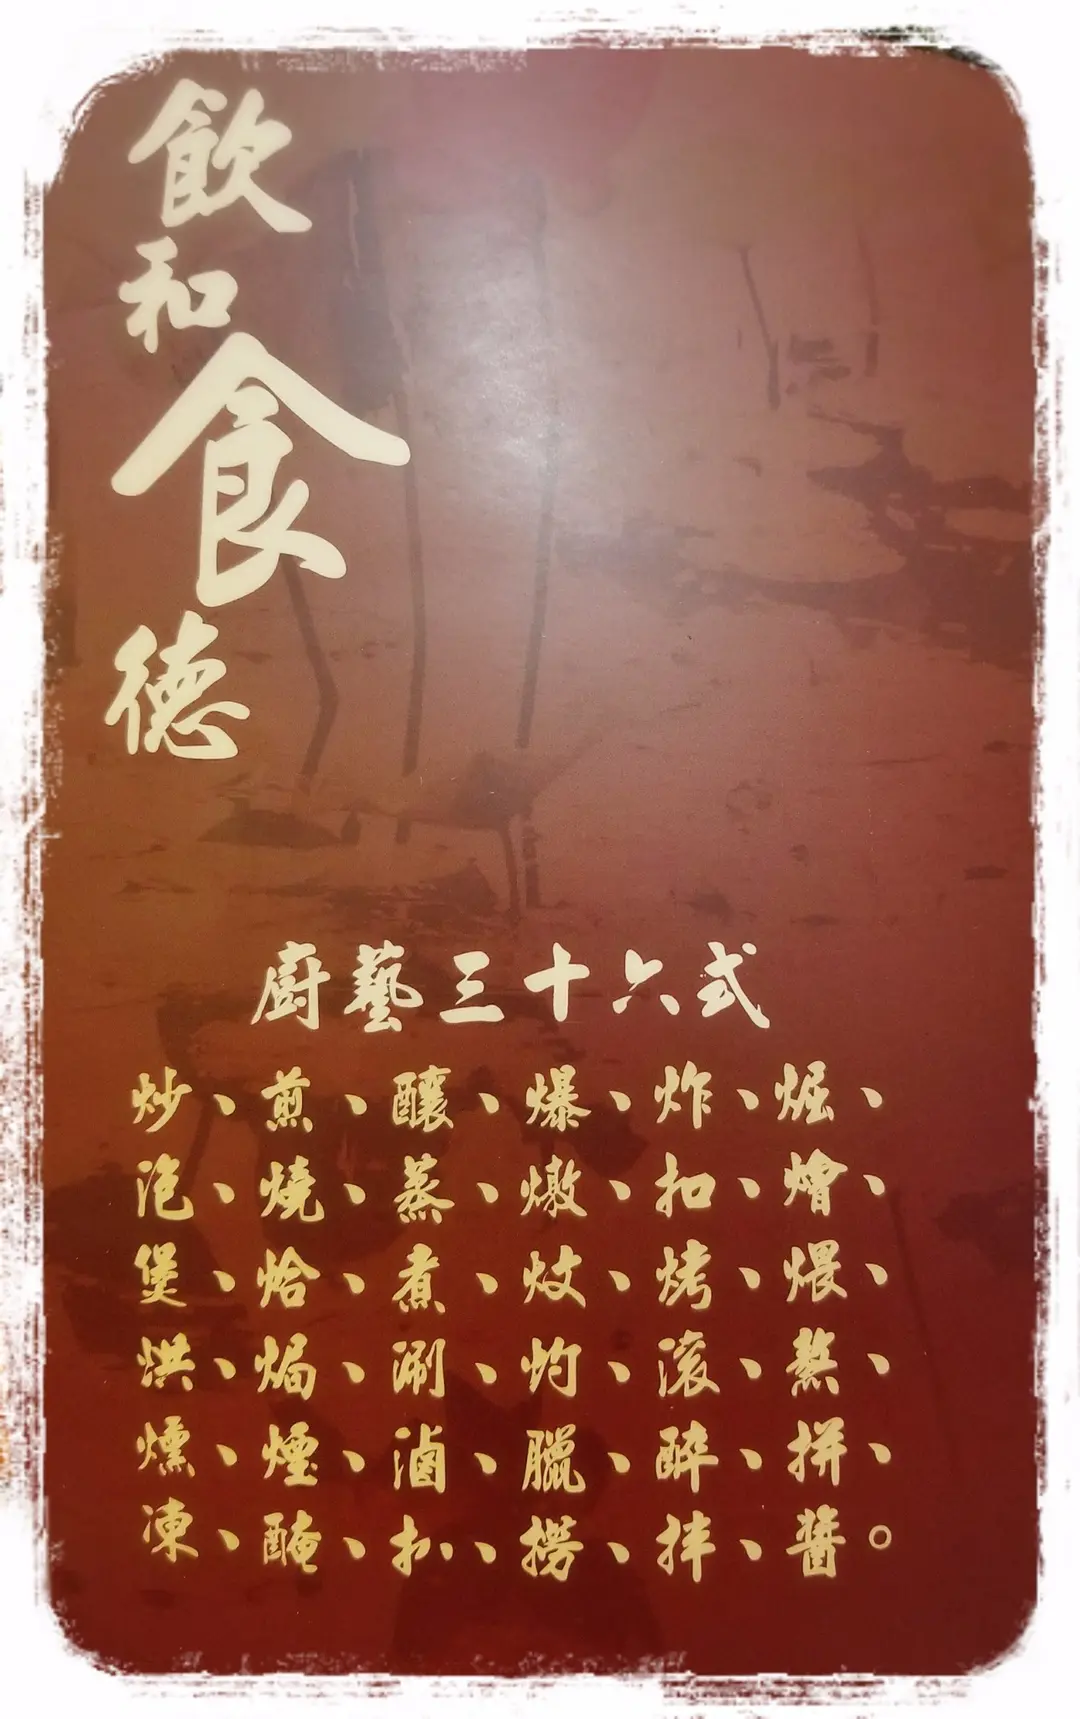 飲和食德
廚藝三十六式
炒、煎、釀、爆、炸、焗、
泡、燒、蒸、燉、扣、燴、
煲、烚、煮、炆、烤、煨、
烘、焗、涮、灼、滾、熬、
燻、煙、滷、臘、醉、拼、
凍、醃、扒、撈、拌、醬。